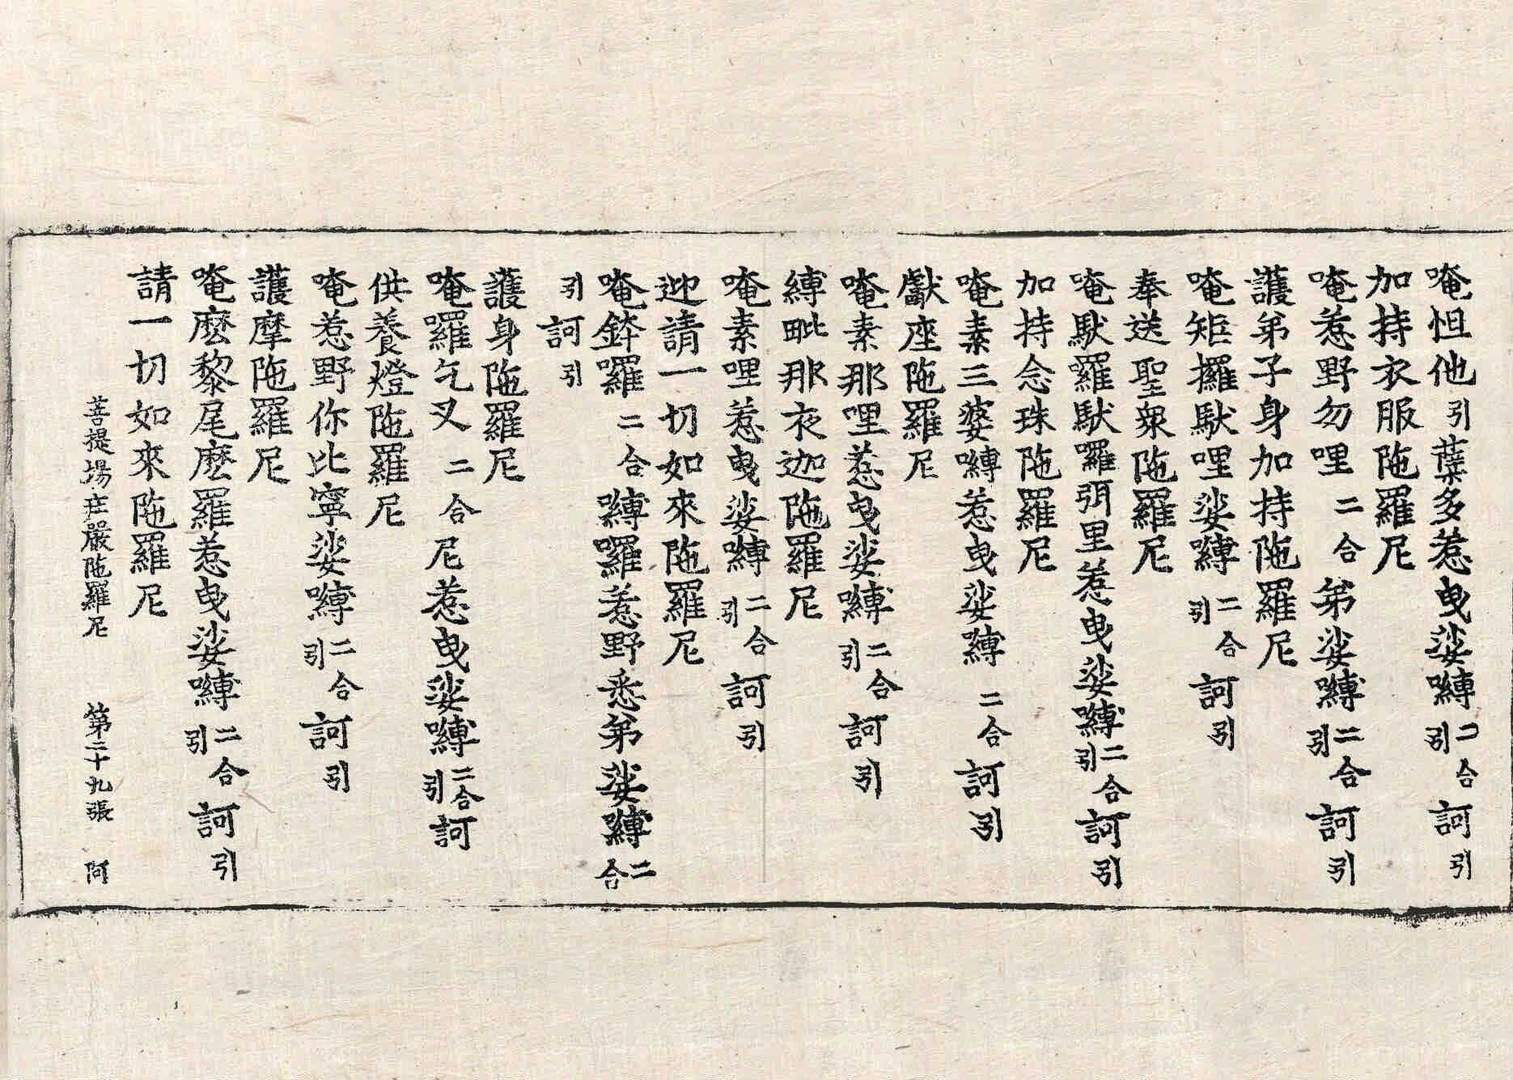 唵怛他引蘖多惹曵娑嚩二合引訶引
加持衣服陁羅尼
唵惹野勿哩二合弟娑嚩二合引訶引
護弟子身加持陁羅尼
唵矩攞馱哩娑嚩二合引訶引
奉送聖衆陁羅尼
唵馱羅馱囉弭里惹曵娑嚩二合引訶引
加持念珠陁羅尼
唵素三婆嚩惹曵娑嚩二合訶引
獻座陁羅尼
唵素那哩惹曵娑嚩二合引訶引
縛毗那夜迦陁羅尼
唵素哩惹曵娑嚩二合引訶引
迎請一切如來陁羅尼
唵鉢羅二合嚩囉惹野悉弟娑嚩二合
引訶引
護身陁羅尼
唵羅乞叉二合尼惹曵娑嚩二合引訶
供養燈陁羅尼
唵惹野你比寧娑嚩二合引訶引
護摩陁羅尼
唵麽黎尾麽羅惹曵娑嚩二合引訶引
請一切如來陁羅尼
菩提場莊嚴陁羅尼　第二十九張　阿